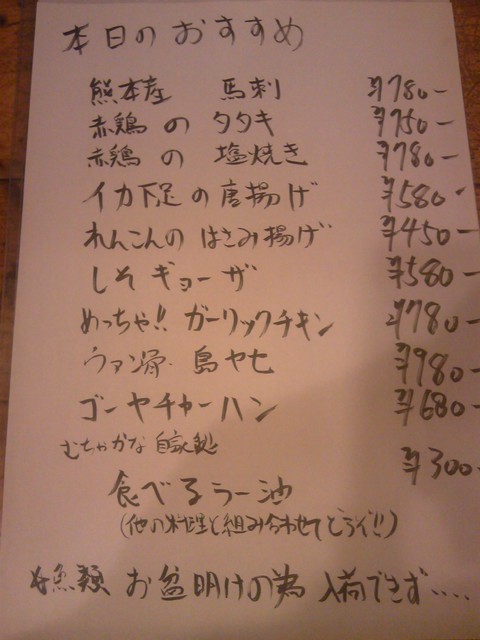 本日のおすすめ
熊本産 馬刺 ¥780-
赤鶏のタタキ ¥750-
赤鶏の塩焼き ¥780-
イカ下足の唐揚げ ¥580-
れんこんのはさみ揚げ ¥450-
しそギョーザ ¥580-
めっちゃ!! ガーリックチキン ¥780-
島ヤセ ¥980-
ゴーヤチャーハン ¥680-
むちゃかな自家製 ¥300-
食べるラー油
(他の料理と組み合わせてどうぞ!!)
魚類 お盆明けの為 入荷できず....